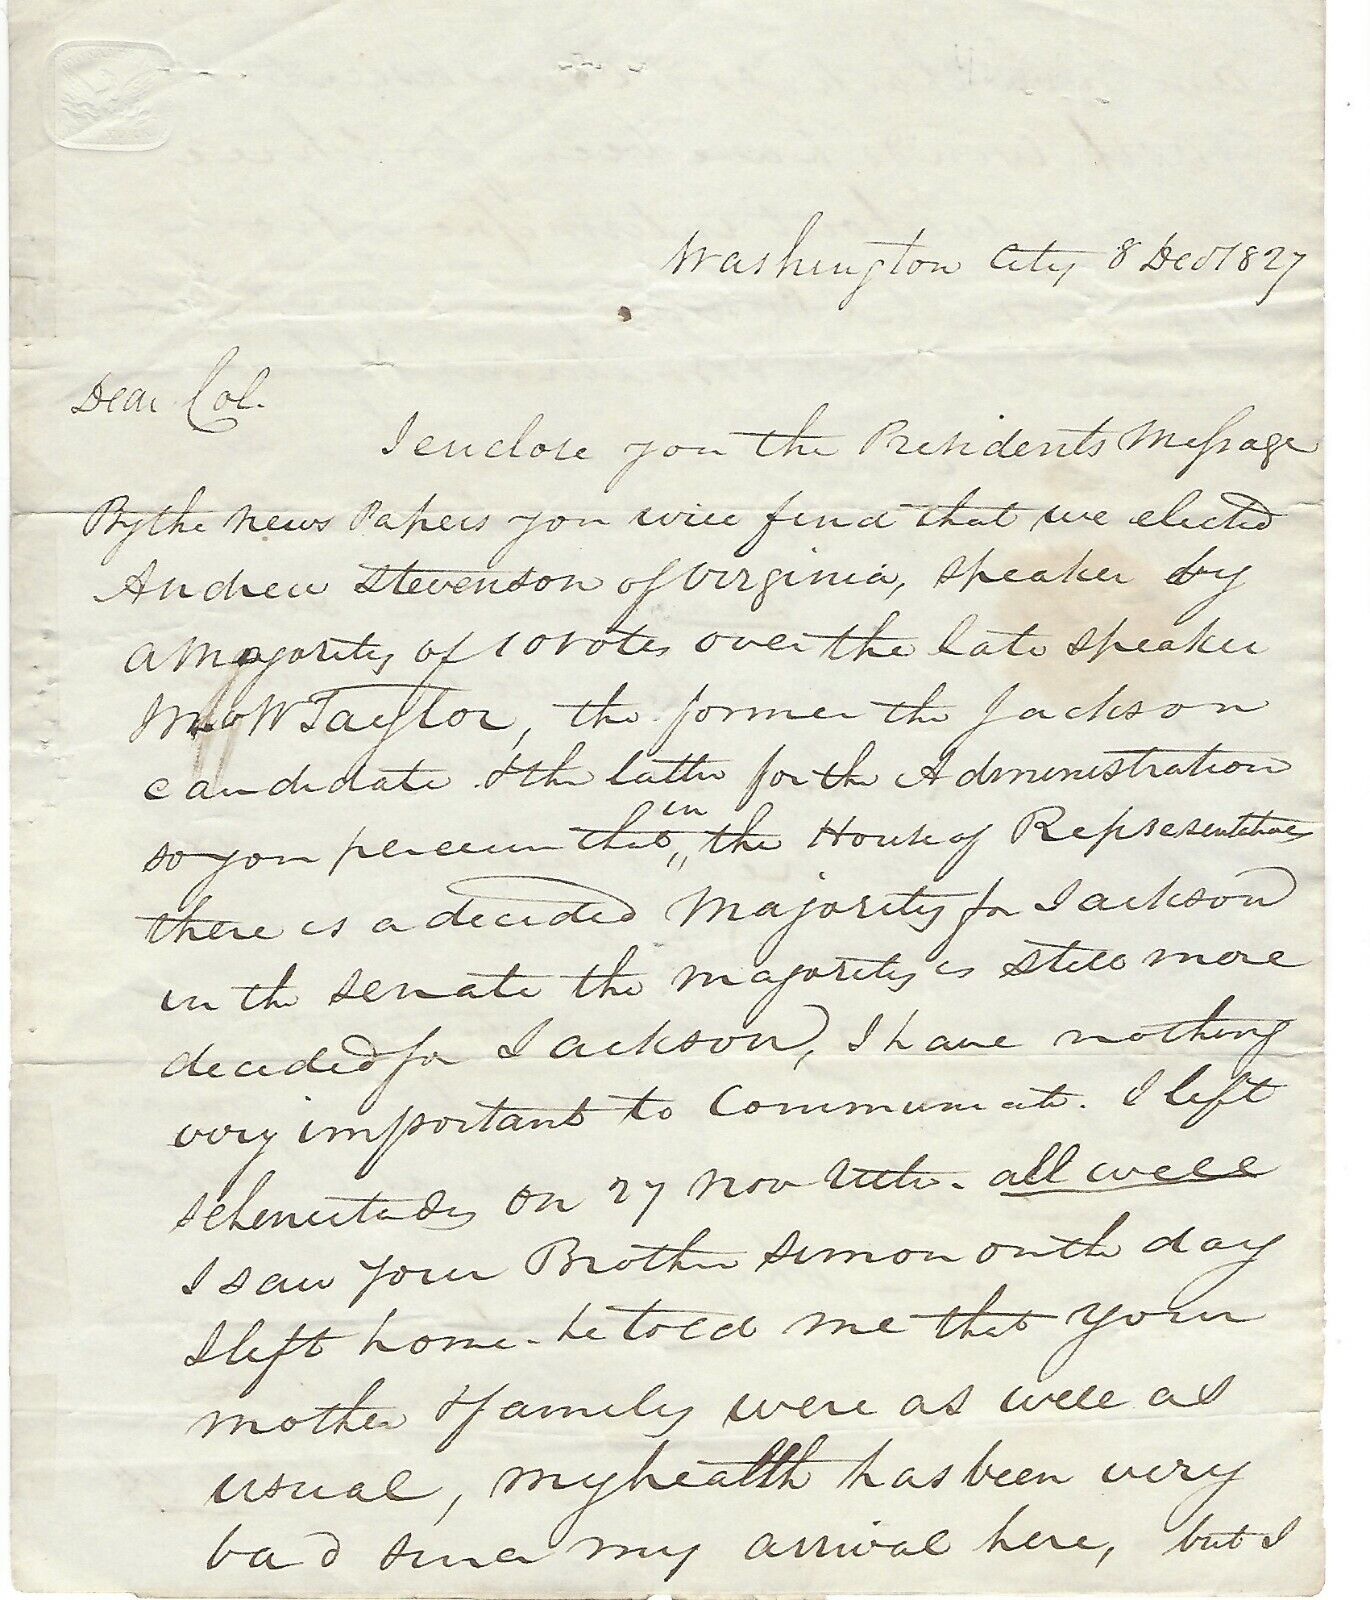 Washington City 8 Decr 1827
Dear Col.
I enclose you the Presidents Message
By the news Papers you will find that we elected
Andrew Stevenson of Virginia, speaker by
a Majority of 10 votes over the late speaker
W Taylor, the former the Jackson
candidate & the latter for the Administration
so you perceive that in the House of Representatives
there is a decided Majority for Jackson
in the senate the majority is still more
decided for Jackson, I have nothing
very important to Communicate. I left
Schenectady on 27 Nov Ulto. all well
I saw your Brother Simon on the day
I left home - he told me that your
mother & family were as well as
usual, my health has been very
bad since my arrival here, but I